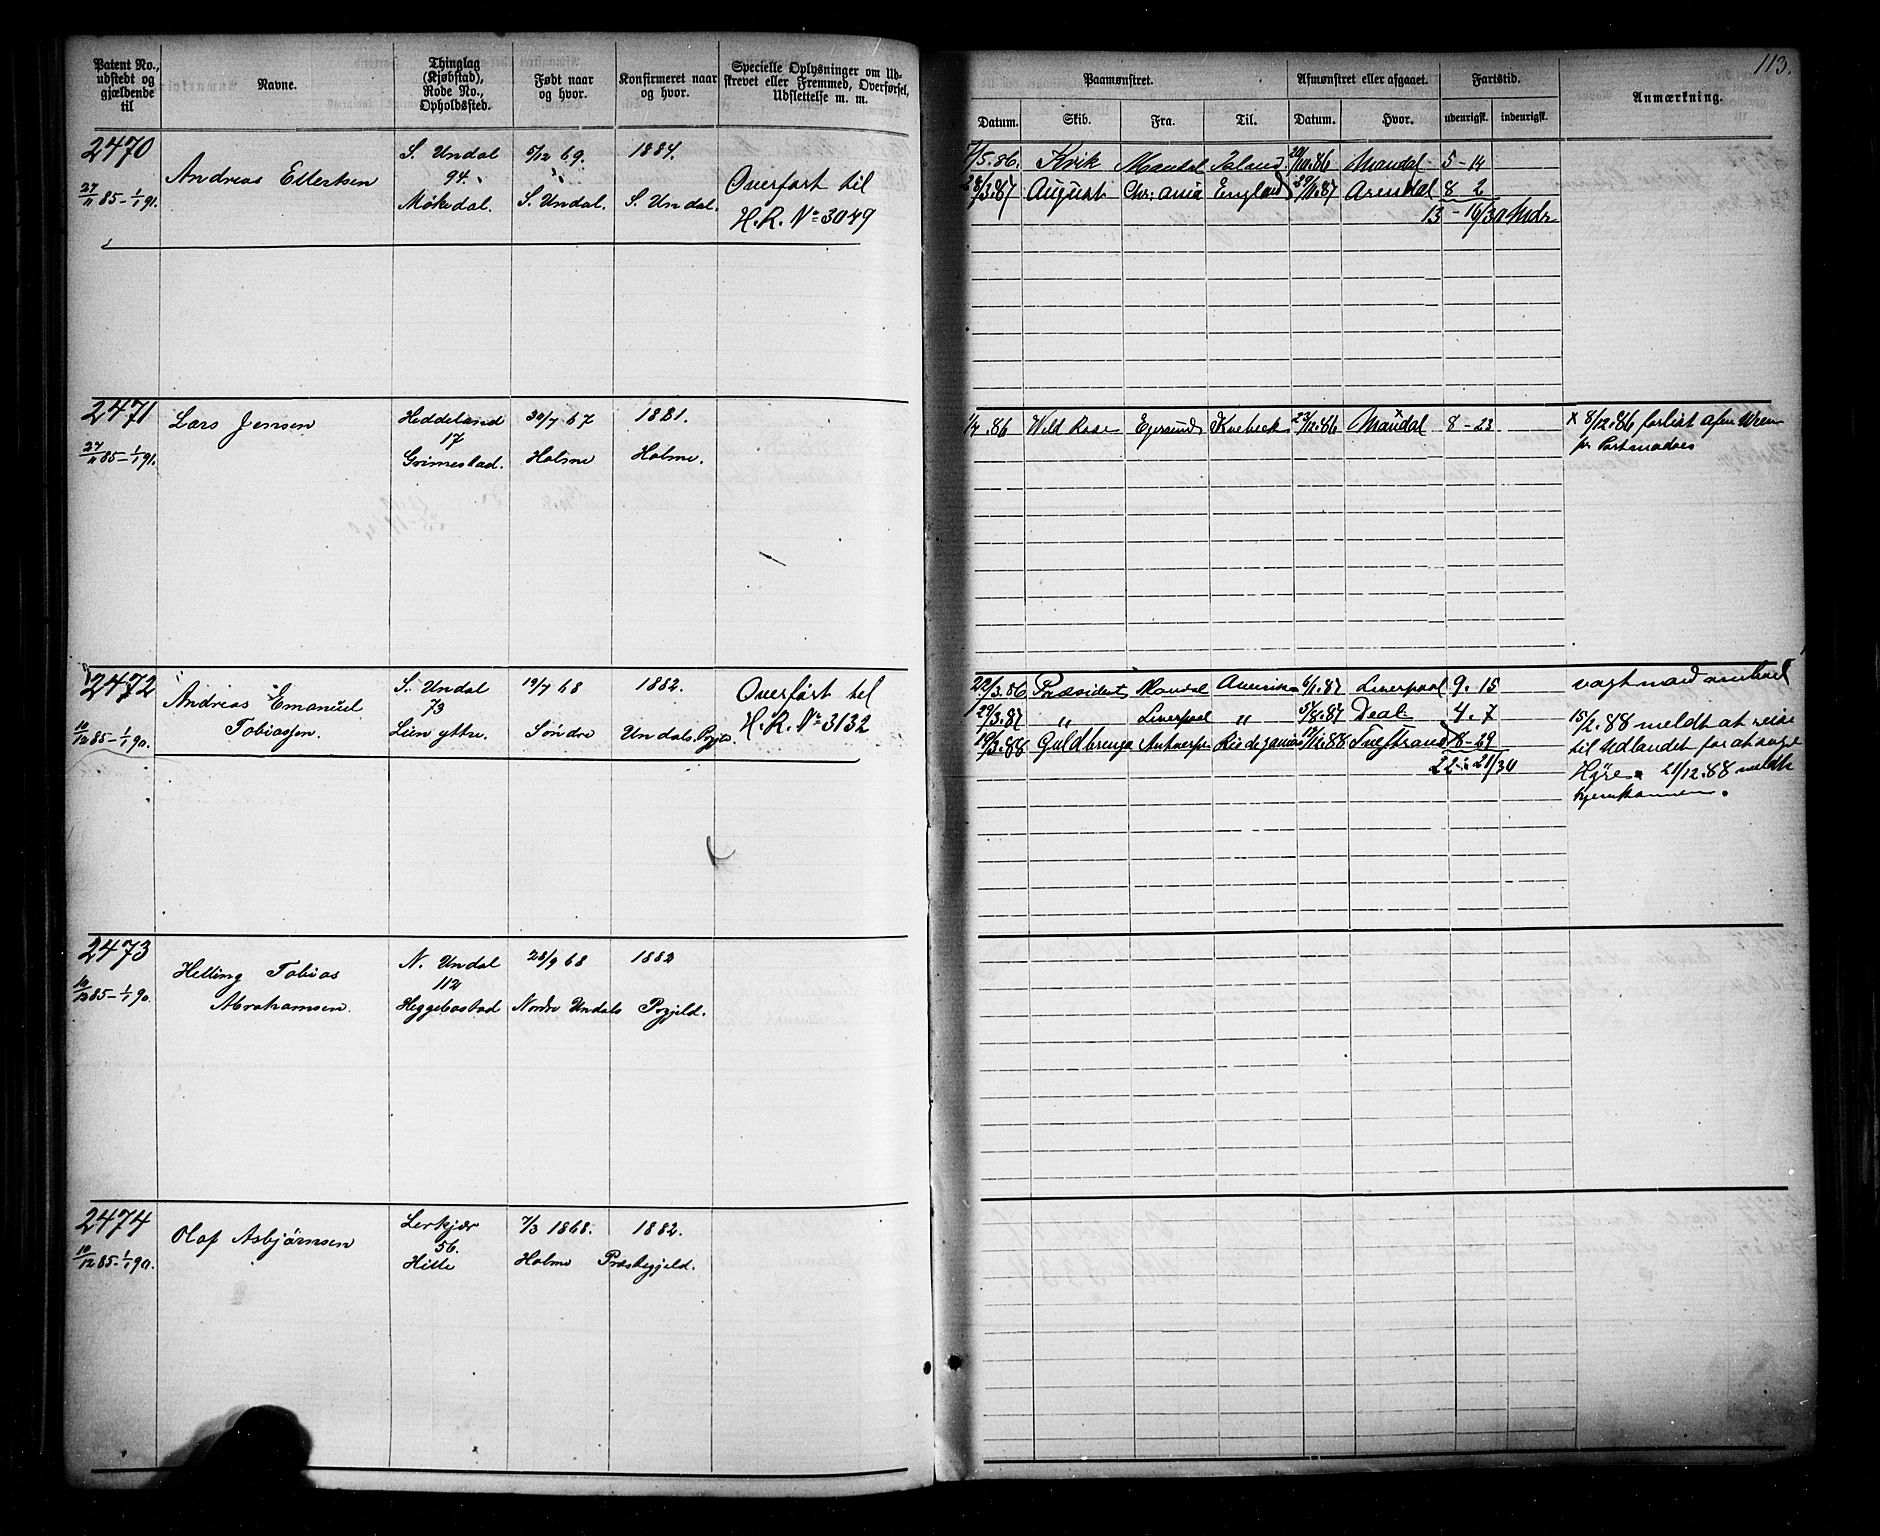 113.
Patent No., udstedt og gjældende til
Navne.
Thinglag (Kjøbstad), Rode No., Opholdssted.
Født naar og hvor.
Konfirmeret naar og hvor.
Specielle Oplysninger om Udskrevet eller Fremmed, Overførsel, Udslettelse m. m.
Paamønstret.
Afmønstret eller afgaaet.
Fartstid.
Anmærkning.
Datum. Skib. Fra. Til. Datum. Hvor. udenrigsk. indenrigsk.
2470
27/11 85 – 1/1 91.
Andreas Ellertsen
S. Undal 5/12 69. 1884.
94.
Møkedal. S. Undal. S. Undal.
Overført til
H.R. No 3049
7/5.86. Kvik Mandal Island. 20/10.86 Mandal 5 - 14
28/3.87 August Chr:ania England 29/11.87 Arendal 8 2
13 - 16/30 Mdr
2471
27/11 85 – 1/1 91.
Lars Jensen
Heddeland 30/7 67 1881.
17
Grimestad. Holme Holme.
1/4.86 Wild Rose Egersund Kuebeck 23/12.86 Mandal x 8 - 23
x 8/12.86 forlist
2472
10/12 85 – 1/1 90.
Andreas Emanuel
Tobiassen.
S. Undal 19/7 68 1882.
73
Lien yttre. Søndre Undals Prgjld.
Overført til
H.R. No 3132
22/3.86 Præsident Mandal Amerika 6/1.87 Liverpool 9. 15
29/3.87 „ Liverpool „ 5/8.87 Deal 4. 7
19/3.88 Antwerpen 8 - 29
22 - 21/30
15/2.88 meldt at reise
til Udlandet for at søge
Hyre. 21/12.88 meldt
hjemkommen.
2473
10/12 85 – 1/1 90.
Helling Tobias
Abrahamsen.
N. Undal 28/9 68 1882
112
Heggebostad Nordre Undals Prgjeld.
2474
10/12 85 – 1/1 90.
Olaf Asbjørnsen
Lerkjær 7/3 1868. 1882.
56.
Hille Holme Præstegjeld.